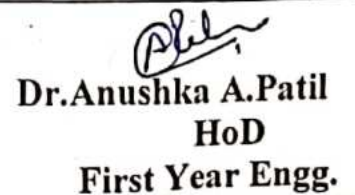 Dr.Anushka A.Patil
HoD
First Year Engg.